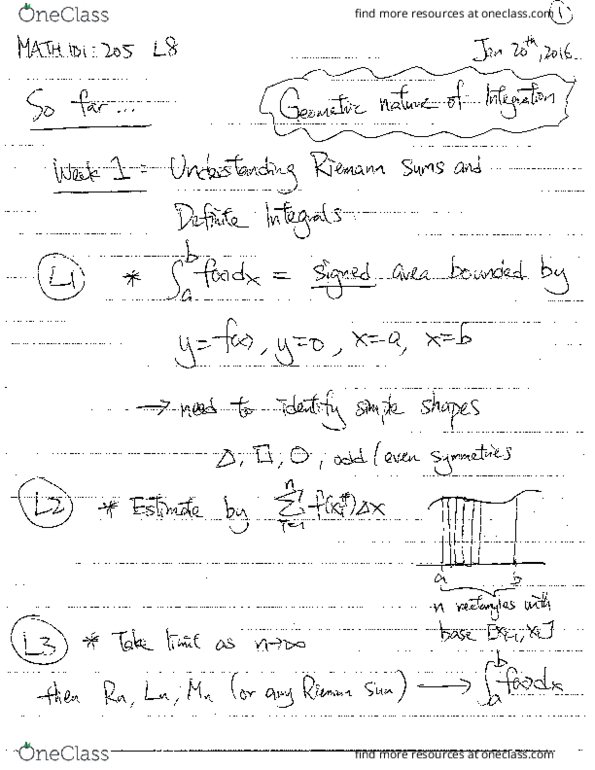 OneClass
find more resources at oneclass.com
1
MATH 101:205 L8
Jan 20th, 2016
So far...
Geometric nature of Integration
Week 1: Understanding Riemann Sums and
Definite Integrals
L1 * ∫_a^b f(x)dx = signed area bounded by
y=f(x), y=0, x=a, x=b
→ need to identify simple shapes
△, □, ○, odd/even symmetries
L2 * Estimate by Σ_{i=1}^n f(x_i^*)Δx
a b
n rectangles with
base [x_{i-1}, x_i]
L3 * Take limit as n→∞
then Rn, Ln, Mn (or any Riemann Sum) → ∫_a^b f(x)dx
OneClass
find more resources at oneclass.com